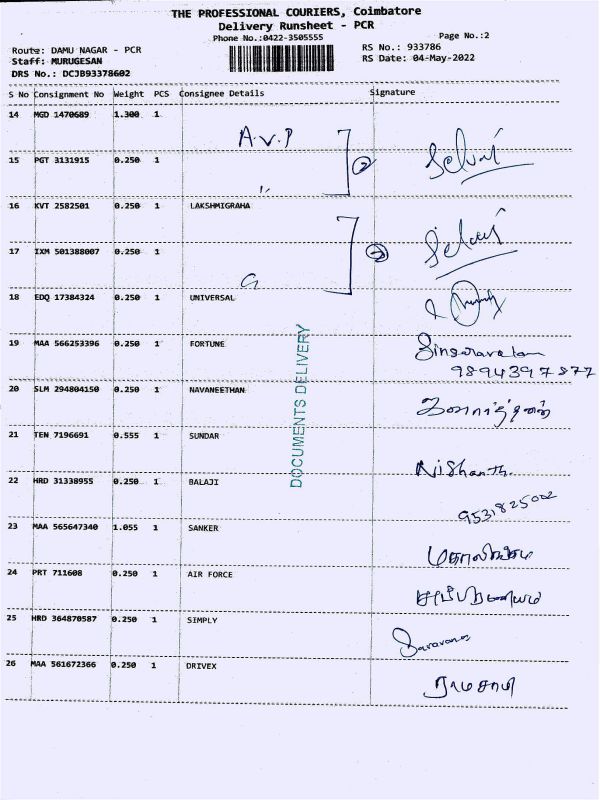 THE PROFESSIONAL COURIERS, Coimbatore
Delivery Runsheet - PCR
Phone No.:0422-3505555
Page No.:2
Route: DAMU NAGAR - PCR
RS No.: 933786
Staff: MURUGESAN
RS Date: 04-May-2022
DRS No.: DCJB93378602
S No Consignment No Weight PCS Consignee Details Signature
14 MGD 1470689 1.300 1
A.V.P
15 PGT 3131915 0.250 1
Selvar
16 KVT 2582501 0.250 1 LAKSHMIGRAHA
17 IXM 501388007 0.250 1
18 EDQ 17384324 0.250 1 UNIVERSAL
19 MAA 566253396 0.250 1 FORTUNE
9894397877
20 SLM 294804150 0.250 1 NAVANEETHAN
21 TEN 7196691 0.555 1 SUNDAR
Nishanth
22 HRD 31338955 0.250 1 BALAJI
9531825002
23 MAA 565647340 1.055 1 SANKER
மகாலிங்கம்
24 PRT 711608 0.250 1 AIR FORCE
25 HRD 364870587 0.250 1 SIMPLY
Saravana
26 MAA 561672366 0.250 1 DRIVEX
ராமசாமி
DOCUMENTS DELIVERY